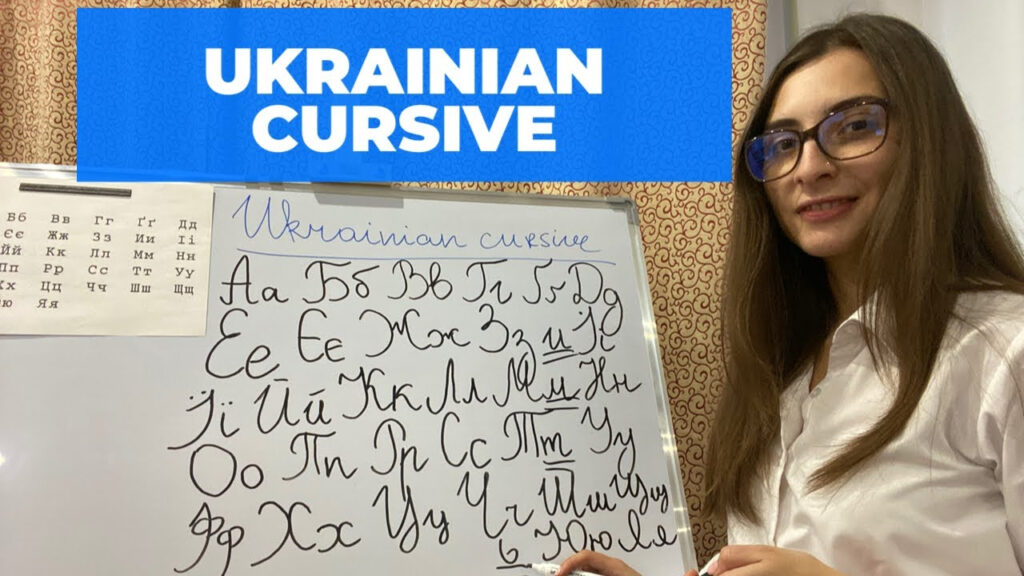 UKRAINIAN
CURSIVE
Бб Вв Гг Ґґ Дд
Єє Жж Зз Ии Іі
Йй Кк Лл Мм Нн
Пп Рр Сс Тт Уу
Хх Цц Чч Шш Щщ
Яя
Ukrainian cursive
Аа Бб Вв Гг Ґґ Дд
Ее Єє Жж Зз и Іі
Її Йй Кк Лл Мм Нн
Оо Пп Рр Сс Тт Уу
Фф Хх Цц Чч Шш Щщ
ь Юю Яя